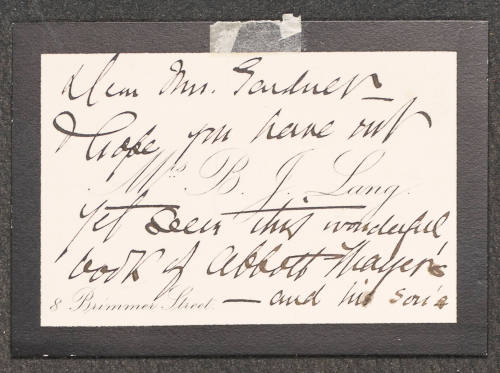 Dear Mrs. Gardner —
I hope you have not
Mrs. B. J. Lang.
yet seen this wonderful
book of Abbott Thayer's
8 Brimmer Street.
— and his son's